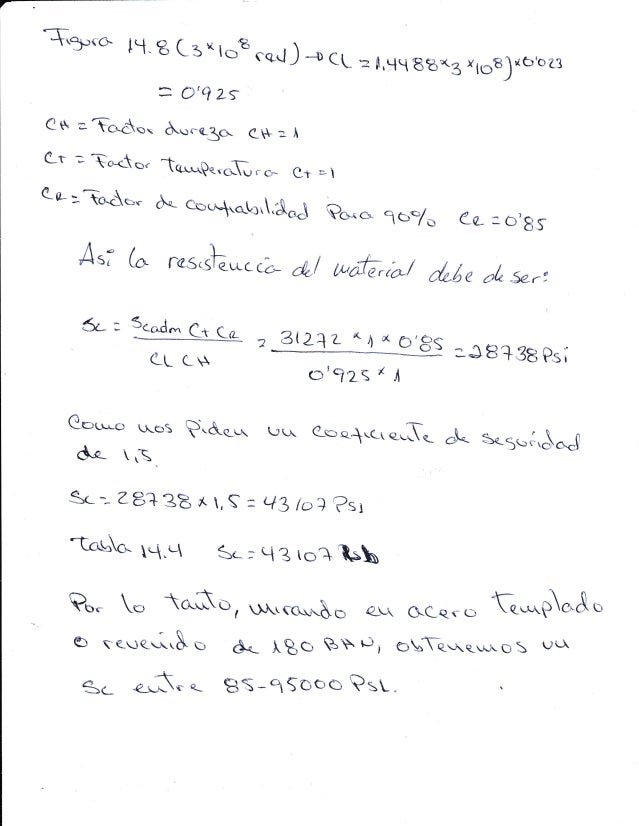 Figura 14.8 (3*10^8 rev) → CL = 1,4488*3*10^8)*0'023
= 0'925
CH = Factor dureza CH = 1
CT = Factor temperatura CT = 1
CR = Factor de confiabilidad Para 90% CR = 0'85
Así la resistencia del material debe de ser:
Sc = Scadm CT CR / CL CH = 31272 * 1 * 0'85 / 0'925 * 1 = 28738 Psi
Como nos Piden un coeficiente de seguridad
de 1,5.
Sc = 28738 * 1,5 = 43107 Psi
tabla 14.4 Sc = 43107
Por lo tanto, mirando en acero templado
o revenido de 180 BHN, obtenemos un
Sc entre 85-95000 Psi.